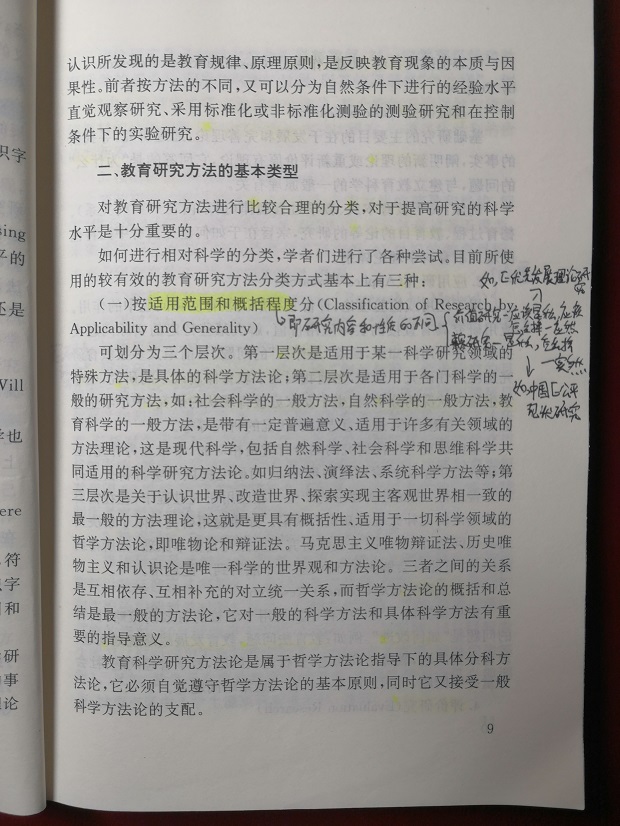 认识所发现的是教育规律、原理原则,是反映教育现象的本质与因
果性。前者按方法的不同,又可以分为自然条件下进行的经验水平
直觉观察研究、采用标准化或非标准化测验的测验研究和在控制
条件下的实验研究。
二、教育研究方法的基本类型
对教育研究方法进行比较合理的分类,对于提高研究的科学
水平是十分重要的。
如何进行相对科学的分类,学者们进行了各种尝试。目前所使
用的较有效的教育研究方法分类方式基本上有三种:
(一)按适用范围和概括程度分(Classification of Research by
Applicability and Generality)
即研究内容和性质的不同
可划分为三个层次。第一层次是适用于某一科学研究领域的
特殊方法,是具体的科学方法论;第二层次是适用于各门科学的一
般的研究方法,如:社会科学的一般方法,自然科学的一般方法,教
育科学的一般方法,是带有一定普遍意义、适用于许多有关领域的
方法理论,这是现代科学,包括自然科学、社会科学和思维科学共
同适用的科学研究方法论。如归纳法、演绎法、系统科学方法等;第
三层次是关于认识世界、改造世界、探索实现主客观世界相一致的
最一般的方法理论,这就是更具有概括性、适用于一切科学领域的
哲学方法论,即唯物论和辩证法。马克思主义唯物辩证法、历史唯
物主义和认识论是唯一科学的世界观和方法论。三者之间的关系
是互相依存、互相补充的对立统一关系,而哲学方法论的概括和总
结是最一般的方法论,它对一般的科学方法和具体科学方法有重
要的指导意义。
教育科学研究方法论是属于哲学方法论指导下的具体分科方
法论,它必须自觉遵守哲学方法论的基本原则,同时它又接受一般
科学方法论的支配。
9
识字
sing
平的
还是
Will
学也
ere
符
字
和
研
事
论